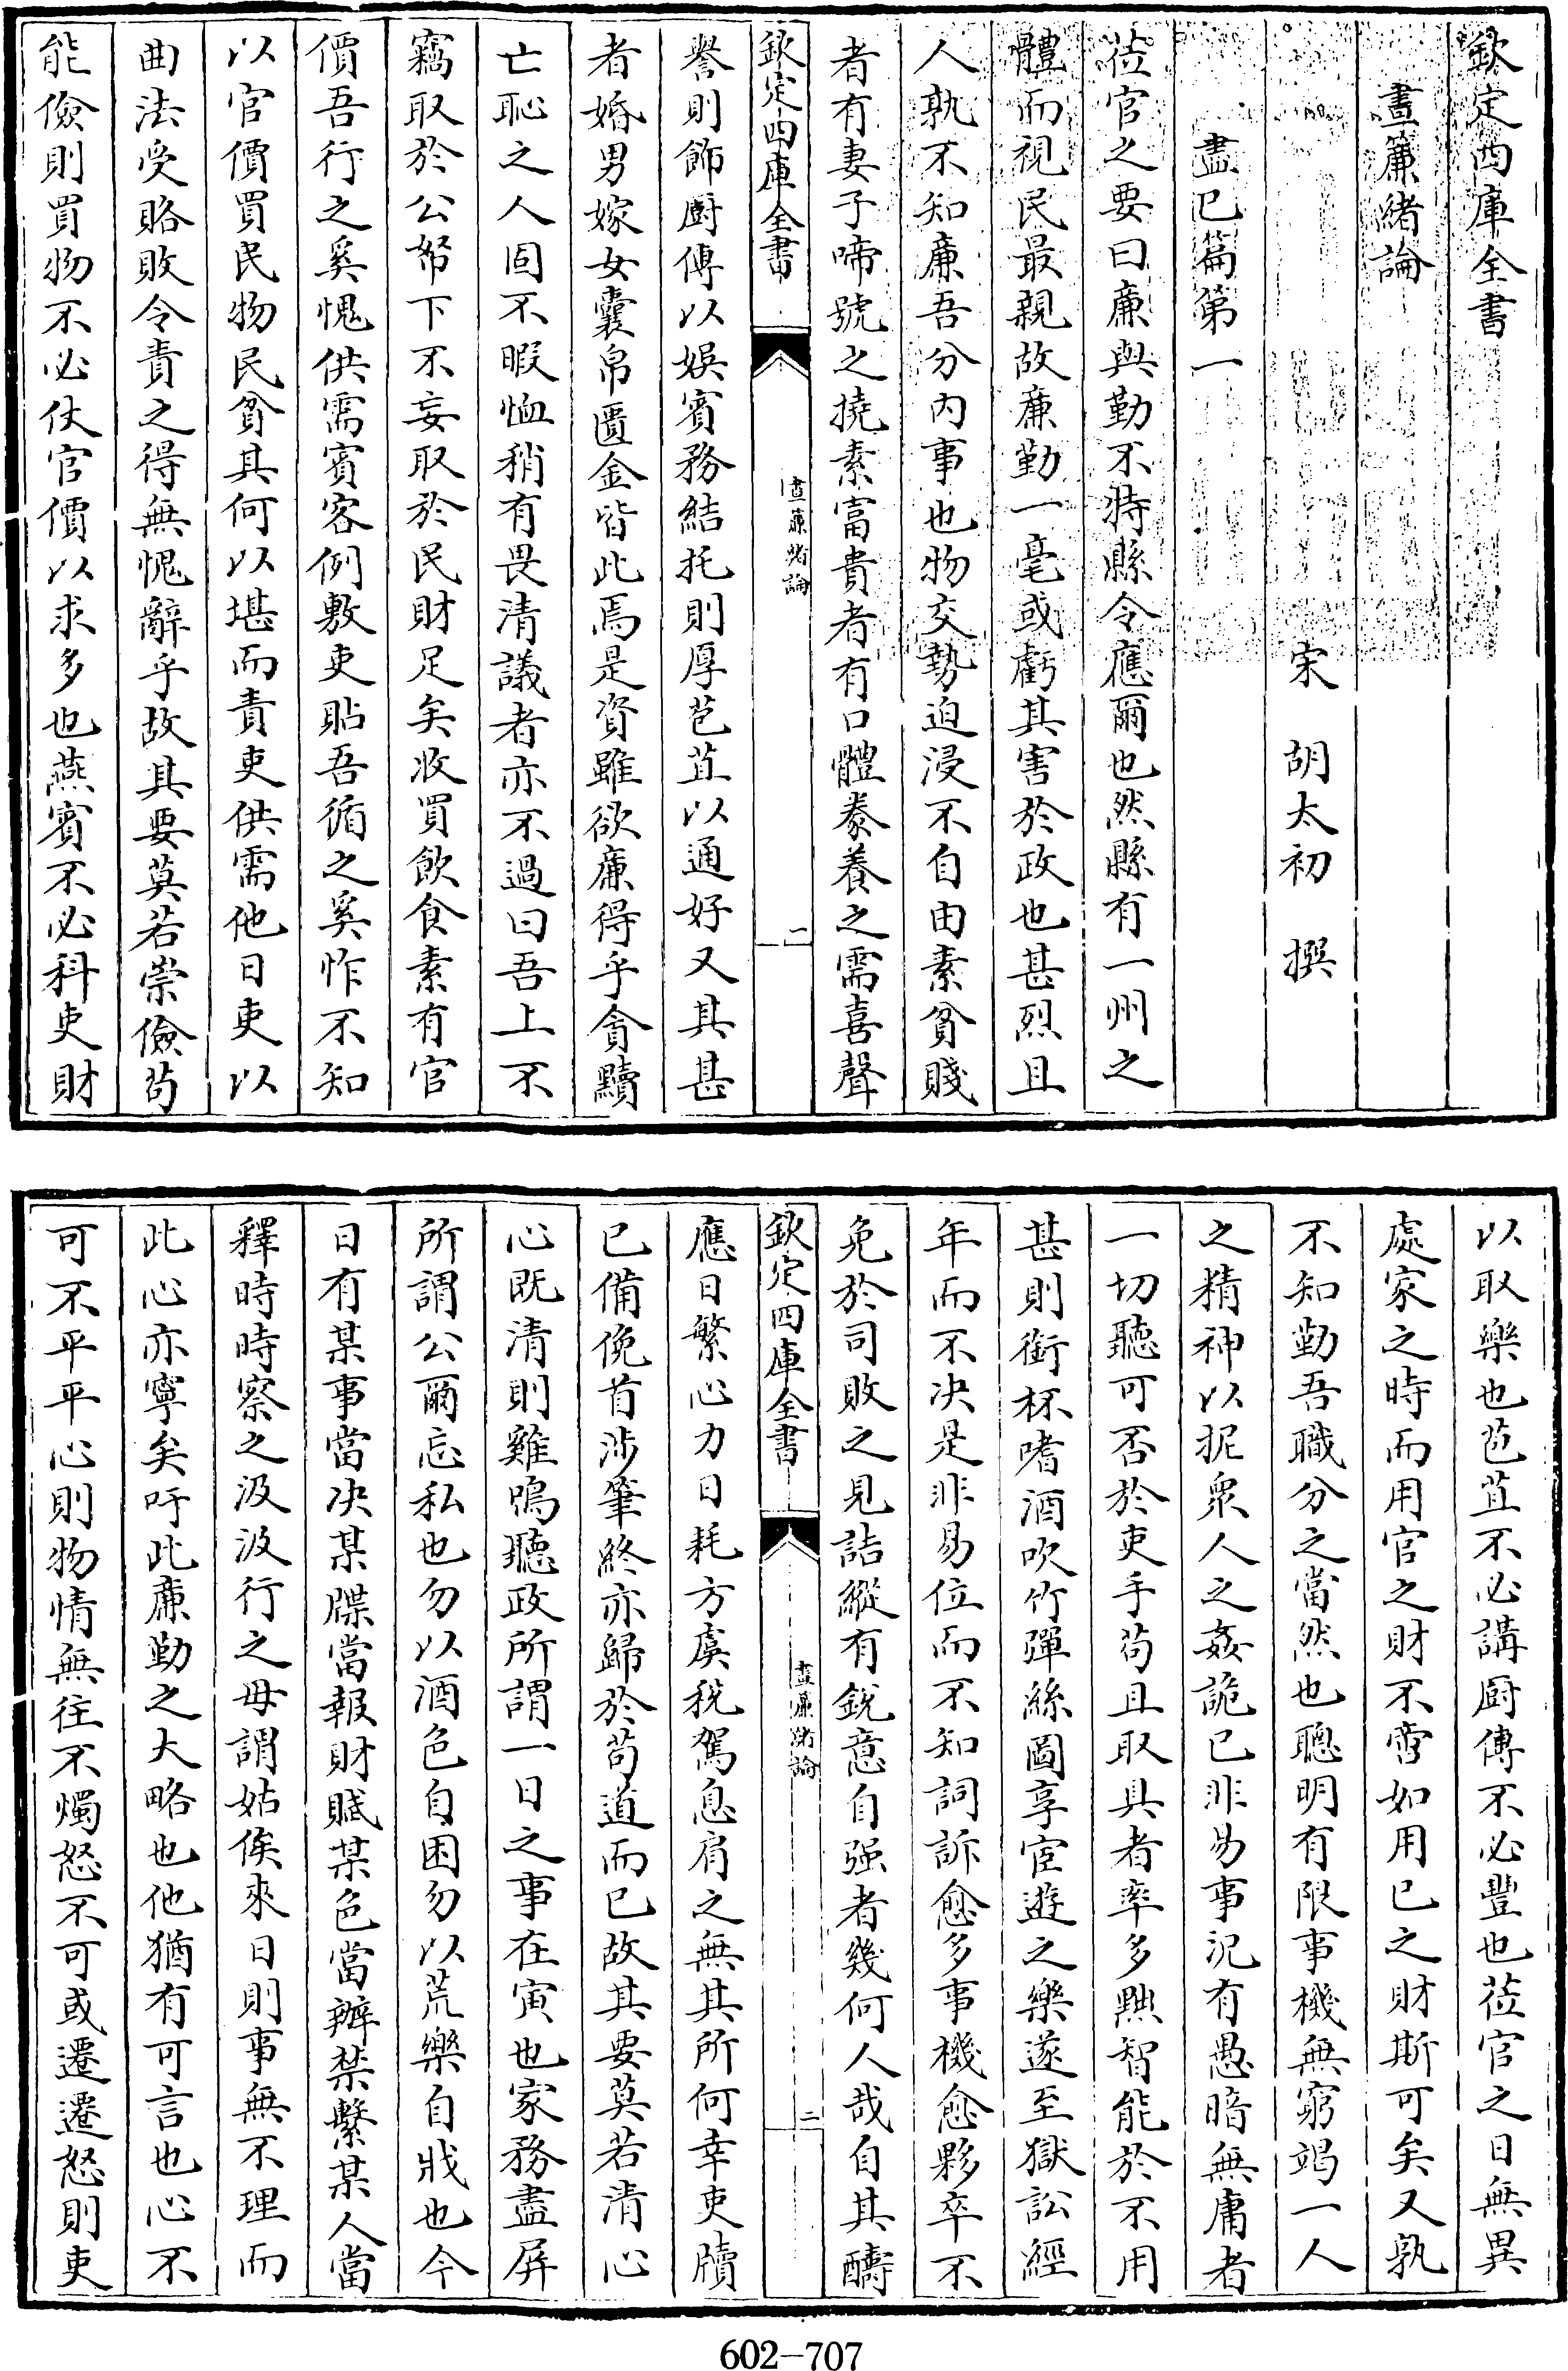 欽定四庫全書
晝簾緒論
宋　胡太初　撰
盡己篇第一
莅官之要曰廉與勤不特縣令應爾也然縣有一州之
體而視民最親故廉勤一毫或虧其害於政也甚烈且
人孰不知廉吾分内事也物交勢迫浸不自由素貧賤
者有妻子啼號之撓素富貴者有口體豢養之需喜聲
欽定四庫全書
晝簾緒論
一
譽則飾厨傳以娱賓務結托則厚苞苴以通好又其甚
者婚男嫁女囊帛匱金皆此焉是資雖欲廉得乎貪黷
亡恥之人固不暇恤稍有畏清議者亦不過曰吾上不
竊取於公帑下不妄取於民財足矣收買飲食素有官
價吾行之奚愧供需賓客例敷吏貼吾循之奚怍不知
以官價買民物民貧其何以堪而責吏供需他日吏以
曲法受賂敗令責之得無愧辭乎故其要莫若崇儉茍
能儉則買物不必仗官價以求多也燕賓不必科吏財
以取樂也苞苴不必講厨傳不必豐也莅官之日無異
處家之時而用官之財不啻如用己之財斯可矣又孰
不知勤吾職分之當然也聰明有限事機無窮竭一人
之精神以扼衆人之姦詭已非易事況有愚暗無庸者
一切聽可否於吏手茍且取具者率多黠智能於不用
甚則銜杯嗜酒吹竹彈絲圖享宦遊之樂遂至獄訟經
年而不决是非易位而不知詞訴愈多事機愈夥卒不
免於司敗之見詰縱有銳意自强者幾何人哉自其酬
欽定四庫全書
晝簾緒論
二
應日繁心力日耗方虞稅駕息肩之無其所何幸吏牘
已備俛首涉筆終亦歸於茍道而已故其要莫若清心
心既清則雞鳴聽政所謂一日之事在寅也家務盡屏
所謂公爾忘私也勿以酒色自困勿以荒樂自戕也今
日有某事當决某牒當報財賦某色當辦禁繫某人當
釋時時察之汲汲行之毋謂姑俟來日則事無不理而
此心亦寧矣吁此廉勤之大略也他猶有可言也心不
可不平平心則物情無往不燭怒不可或遷遷怒則吏
602-707